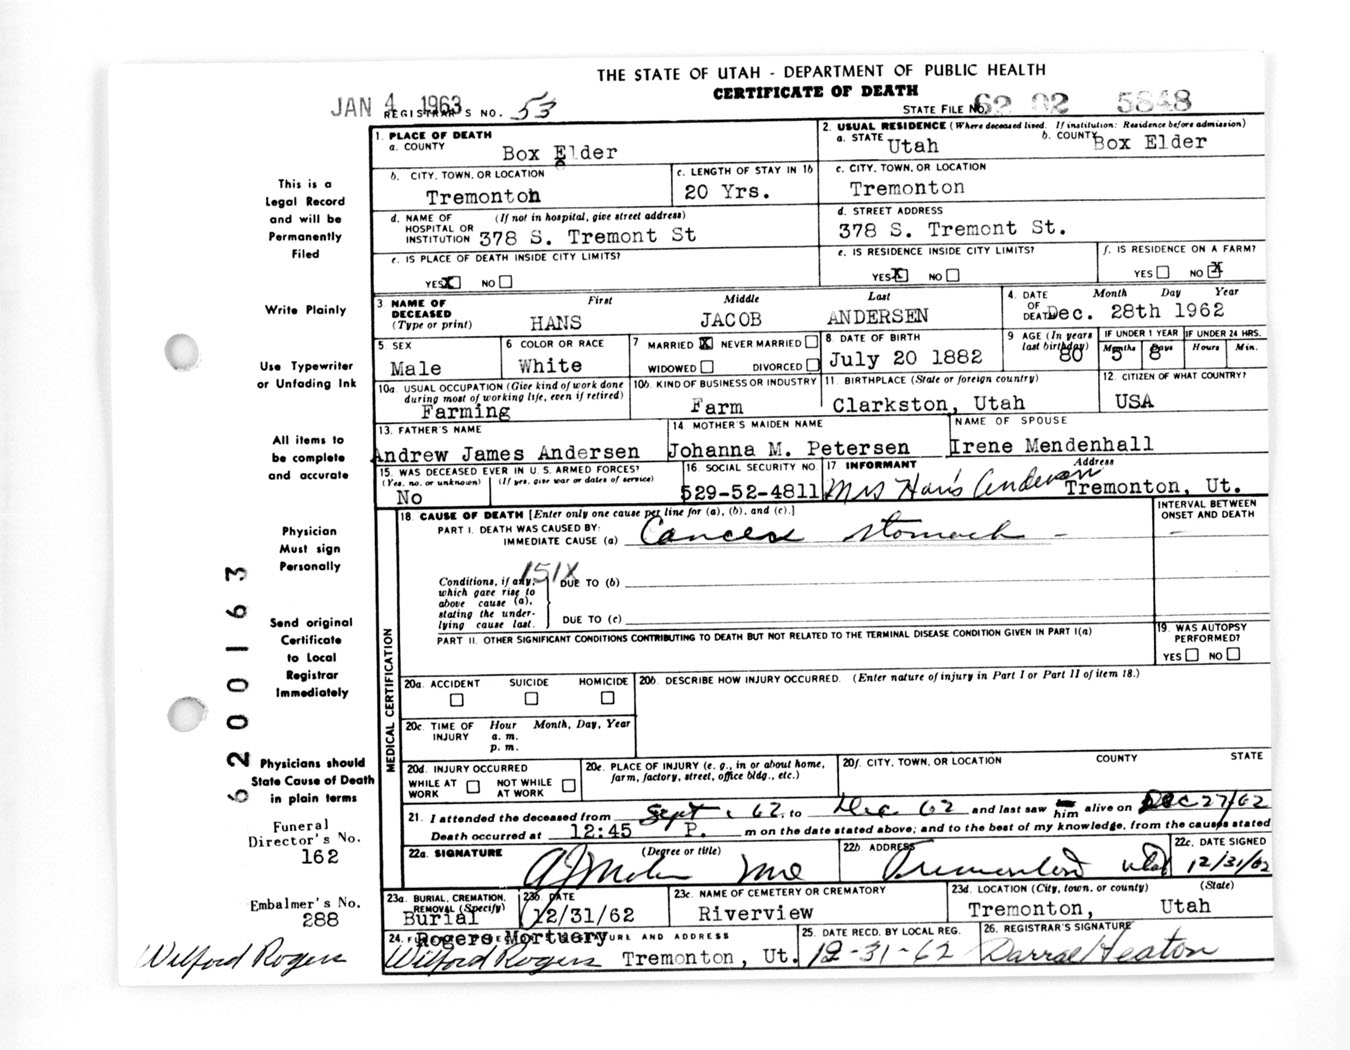 THE STATE OF UTAH - DEPARTMENT OF PUBLIC HEALTH
CERTIFICATE OF DEATH
JAN 4 1963 REGISTRAR'S NO. 53 STATE FILE NO. 62 02 5848
1. PLACE OF DEATH
a. COUNTY Box Elder
2. USUAL RESIDENCE (Where deceased lived. If institution: Residence before admission)
a. STATE Utah b. COUNTY Box Elder
b. CITY, TOWN, OR LOCATION Tremonton
c. LENGTH OF STAY IN 1b 20 Yrs.
c. CITY, TOWN, OR LOCATION Tremonton
d. NAME OF HOSPITAL OR INSTITUTION (If not in hospital, give street address) 378 S. Tremont St
d. STREET ADDRESS 378 S. Tremont St.
e. IS PLACE OF DEATH INSIDE CITY LIMITS?
YES X NO
e. IS RESIDENCE INSIDE CITY LIMITS?
YES X NO
f. IS RESIDENCE ON A FARM?
YES NO X
3 NAME OF DECEASED (Type or print) First Middle Last
HANS JACOB ANDERSEN
4. DATE OF DEATH Month Day Year
Dec. 28th 1962
5. SEX Male
6 COLOR OR RACE White
7 MARRIED X NEVER MARRIED
WIDOWED DIVORCED
8 DATE OF BIRTH July 20 1882
9 AGE (In years last birthday) 80
IF UNDER 1 YEAR Months 5 Days 8
IF UNDER 24 HRS. Hours Min.
10a. USUAL OCCUPATION (Give kind of work done during most of working life, even if retired) Farming
10b. KIND OF BUSINESS OR INDUSTRY Farm
11. BIRTHPLACE (State or foreign country) Clarkston, Utah
12. CITIZEN OF WHAT COUNTRY? USA
13. FATHER'S NAME Andrew James Andersen
14 MOTHER'S MAIDEN NAME Johanna M. Petersen
NAME OF SPOUSE Irene Mendenhall
15. WAS DECEASED EVER IN U.S. ARMED FORCES?
(Yes, no, or unknown) (If yes, give war or dates of service)
No
16. SOCIAL SECURITY NO. 529-52-4811
17 INFORMANT Address
Mrs Hans Andersen Tremonton, Ut.
18. CAUSE OF DEATH [Enter only one cause per line for (a), (b), and (c).]
PART I. DEATH WAS CAUSED BY:
IMMEDIATE CAUSE (a) Cancer stomach
INTERVAL BETWEEN ONSET AND DEATH
151X
Conditions, if any, which gave rise to above cause (a), stating the underlying cause last.
DUE TO (b)
DUE TO (c)
PART II. OTHER SIGNIFICANT CONDITIONS CONTRIBUTING TO DEATH BUT NOT RELATED TO THE TERMINAL DISEASE CONDITION GIVEN IN PART I(a)
19. WAS AUTOPSY PERFORMED?
YES NO
MEDICAL CERTIFICATION
20a. ACCIDENT SUICIDE HOMICIDE
20b. DESCRIBE HOW INJURY OCCURRED. (Enter nature of injury in Part I or Part II of item 18.)
20c. TIME OF INJURY Hour Month, Day, Year
a. m.
p. m.
20d. INJURY OCCURRED
WHILE AT WORK NOT WHILE AT WORK
20e. PLACE OF INJURY (e. g., in or about home, farm, factory, street, office bldg., etc.)
20f. CITY, TOWN, OR LOCATION COUNTY STATE
21. I attended the deceased from Sept, 62, to Dec 62 and last saw him alive on Dec 27/62
Death occurred at 12:45 P. m on the date stated above; and to the best of my knowledge, from the causes stated
22a. SIGNATURE (Degree or title)
22b ADDRESS Tremonton Utah
22c. DATE SIGNED 12/31/62
23a. BURIAL, CREMATION, REMOVAL (Specify) Burial
23b. DATE 12/31/62
23c. NAME OF CEMETERY OR CREMATORY Riverview
23d. LOCATION (City, town, or county) (State)
Tremonton, Utah
24. Rogers Mortuary URE AND ADDRESS
Wilford Rogers Tremonton, Ut.
25. DATE RECD. BY LOCAL REG. 12-31-62
26. REGISTRAR'S SIGNATURE Darrel Heaton
This is a
Legal Record
and will be
Permanently
Filed
Write Plainly
Use Typewriter
or Unfading Ink
All items to
be complete
and accurate
Physician
Must sign
Personally
Send original
Certificate
to Local
Registrar
Immediately
Physicians should
State Cause of Death
in plain terms
Funeral
Director's No.
162
Embalmer's No.
288
Wilford Rogers
62 00163